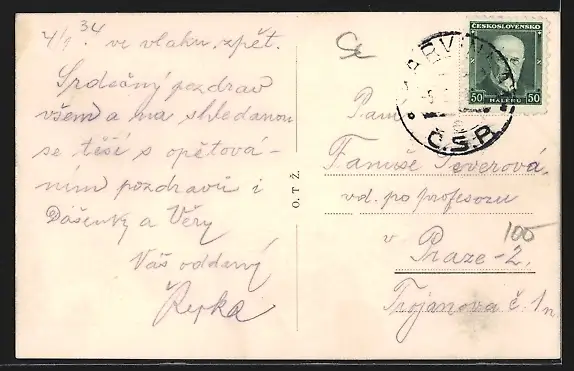 4/1 34 ve vlaku, zpět.
Srdečný pozdrav
všem a na shledanou
se těší s opětová-
ním pozdravů i
Dášenky a Věry
Váš oddaný
Řepka
O. T. Ž.
ČESKOSLOVENSKO
50 HALÉŘŮ 50
Č.S.R.
Paní
Fanuše Severová
vd. po profesoru
v
Praze-2.
Trojanova č. 1n
100